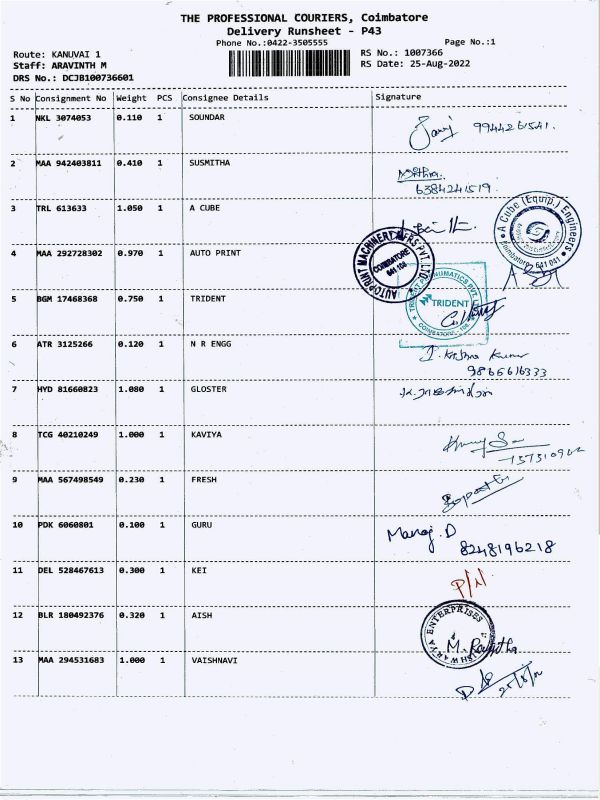 THE PROFESSIONAL COURIERS, Coimbatore
Delivery Runsheet - P43
Phone No.:0422-3505555
Page No.:1
Route: KANUVAI 1
RS No.: 1007366
Staff: ARAVINTH M
RS Date: 25-Aug-2022
DRS No.: DCJB100736601
S No Consignment No Weight PCS Consignee Details Signature
1 NKL 3074053 0.110 1 SOUNDAR
2 MAA 942403811 0.410 1 SUSMITHA
6384241519.
3 TRL 613633 1.050 1 A CUBE
A Cube (Equip.) Engineers
4 MAA 292728302 0.970 1 AUTO PRINT
COIMBATORE
5 BGM 17468368 0.750 1 TRIDENT
TRIDENT
6 ATR 3125266 0.120 1 N R ENGG
J. Krishna Kumar
9865616333
7 HYD 81660823 1.080 1 GLOSTER
8 TCG 40210249 1.000 1 KAVIYA
9 MAA 567498549 0.230 1 FRESH
10 PDK 6060801 0.100 1 GURU Manoj. D
8248196218
11 DEL 528467613 0.300 1 KEI
12 BLR 180492376 0.320 1 AISH
ENTERPRISES
13 MAA 294531683 1.000 1 VAISHNAVI